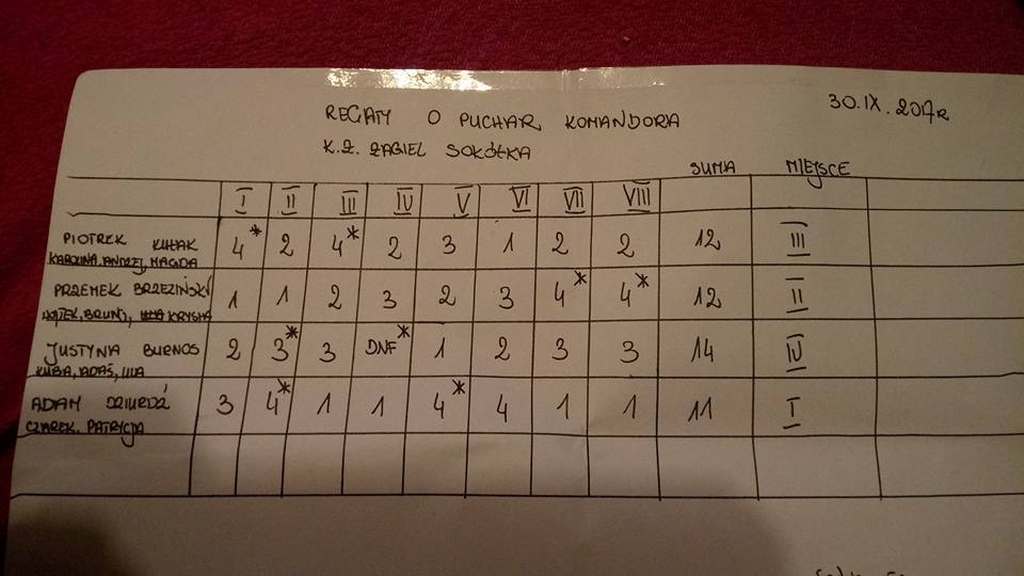 30.IX.2017R
REGATY O PUCHAR KOMANDORA
K.Ż. ŻAGIEL SOKÓŁKA
SUMA MIEJSCE
I II III IV V VI VII VIII
PIOTREK KUŁAK 4* 2 4* 2 3 1 2 2 12 III
KAROLINA, ANDRZEJ, MAGDA
PRZEMEK BRZEZIŃSKI 1 1 2 3 2 3 4* 4* 12 II
KRYSHA
JUSTYNA BURNOS 2 3* 3 DNF* 1 2 3 3 14 IV
KUBA, ADAŚ,
ADAM DZIURDŹ 3 4* 1 1 4* 4 1 1 11 I
CZAREK, PATRYCJA